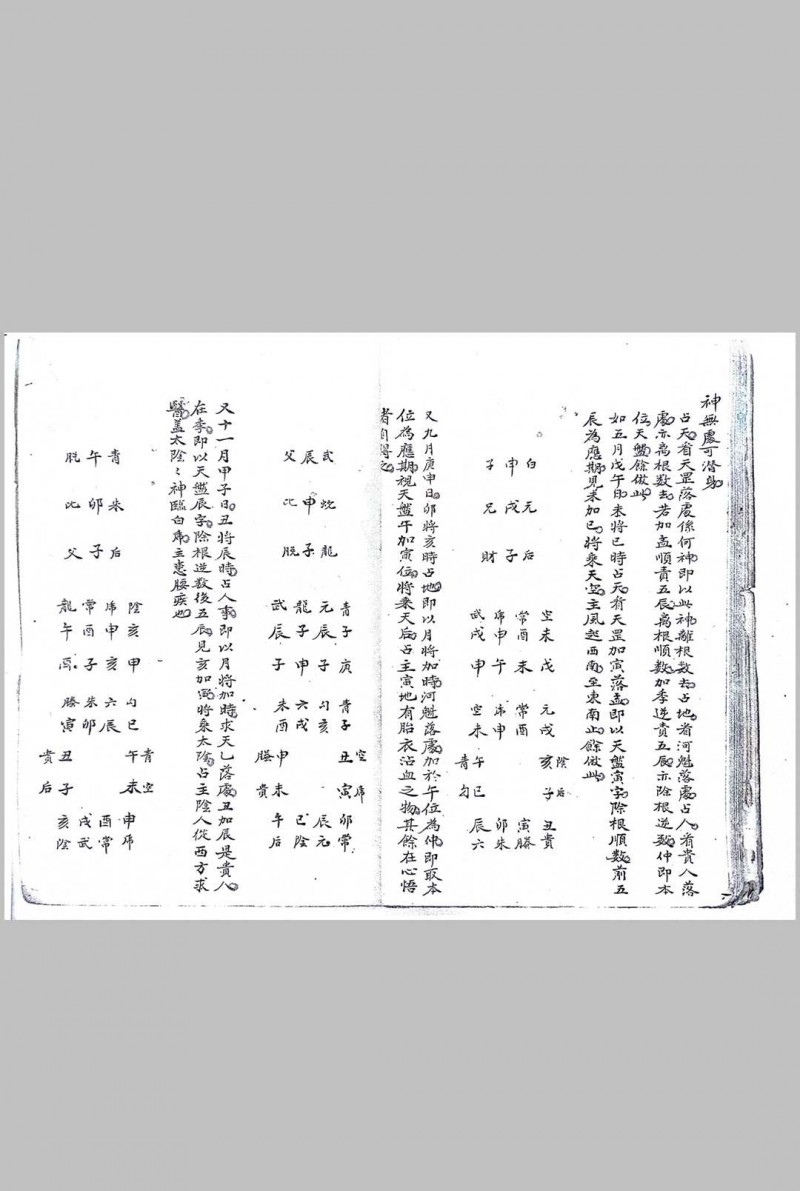 神無處可潛身
占天看天罡落處係何神即以此神離根数去占地看河魁落處占人看貴人落
處亦离根数去若加孟順責五辰离根順数加季逆責五辰亦除根逆数仲即本
位天盤餘倣此
如五月戊午日未將巳時占天看天罡加寅落孟即以天盤寅字除根順数前五
辰為應期見未加巳將乘天空主風起西南至東南止餘倣此
白 元 后
申 戌 子
子 兄 財
空 常 元
未 酉 戌
戊 未
席 武
申 戌
午 申
元 常 席 空
戌 酉 申 未
陰 亥 午 青
后 子 巳 勾
丑 寅 卯 辰
貴 螣 朱 六
又九月庚申日卯將亥時占地即以月將加時河魁落處加於午位為仲即取本
位為應期視天盤午加寅位將乘天后占主寅地有胎衣沾血之物其餘在心悟
者自得之
武 蛇 龍
辰 申 子
父 比 脱
青 元 龍 武
子 辰 子 辰
庚 子 申 子
青 勾 六 朱
子 亥 戌 酉
空 丑 申 螣
席 寅 未 貴
卯 辰 巳 午
常 元 陰 后
又十一月甲子日丑將辰時占人事即以月將加時求天乙落處丑加辰是貴人
在季即以天盤辰字除根逆数後五辰見亥加寅將乘太陰占主陰人從西方求
醫蓋太陰之神臨白席主患腰疾也
青 朱 后
午 卯 子
脱 比 父
陰 席 常 龍
亥 申 酉 午
甲 亥 子 酉
勾 六 朱 螣
巳 辰 卯 寅
青 午 丑 貴
空 未 子 后
申 酉 戌 亥
席 常 武 陰